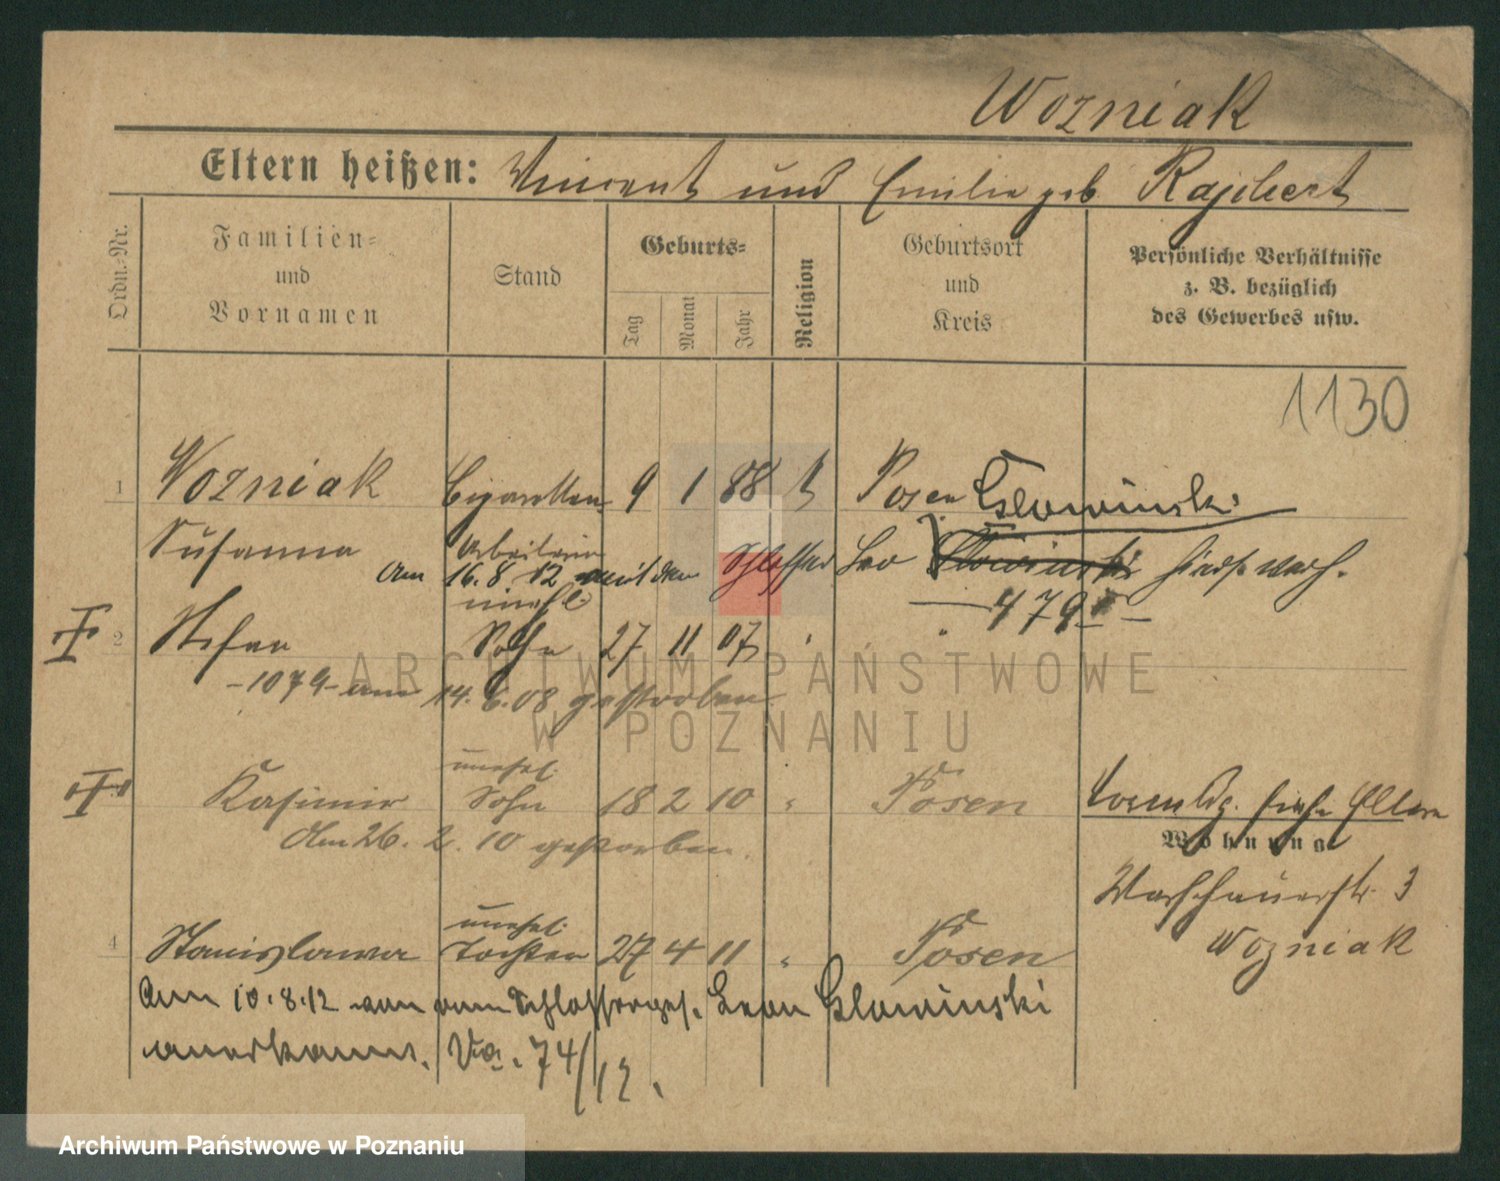 Wozniak
Eltern heißen: Vincent und Emilie geb. Rajchert
Ordn.-Nr.
Familien-
und
Vornamen
Stand
Geburts-
Tag
Monat
Jahr
Religion
Geburtsort
und
Kreis
Persönliche Verhältnisse
z. B. bezüglich
des Gewerbes usw.
1130
1 Wozniak Cigaretten 9 1 88 k Posen Glowinski
Susanna Arbeiterin
Am 16.8.12 mit dem Schlosser Leo Glowinski hierselbst verh.
479
unehl.
2 Stefan Sohn 27 11 07 "
-1079- am 14.6.08 gestorben
unehel.
Kasimir Sohn 18 2 10 " Posen
Am 26. 2. 10 gestorben.
siehe Eltern
Wohnung
Warschauerstr. 3
Wozniak
unehel.
4 Stanislawa Tochter 27 4 11 " Posen
Am 10.8.12 von dem Schlosserges. Leon Glowinski
anerkannt. Va. 74/12.
ARCHIWUM PAŃSTWOWE
W POZNANIU
Archiwum Państwowe w Poznaniu